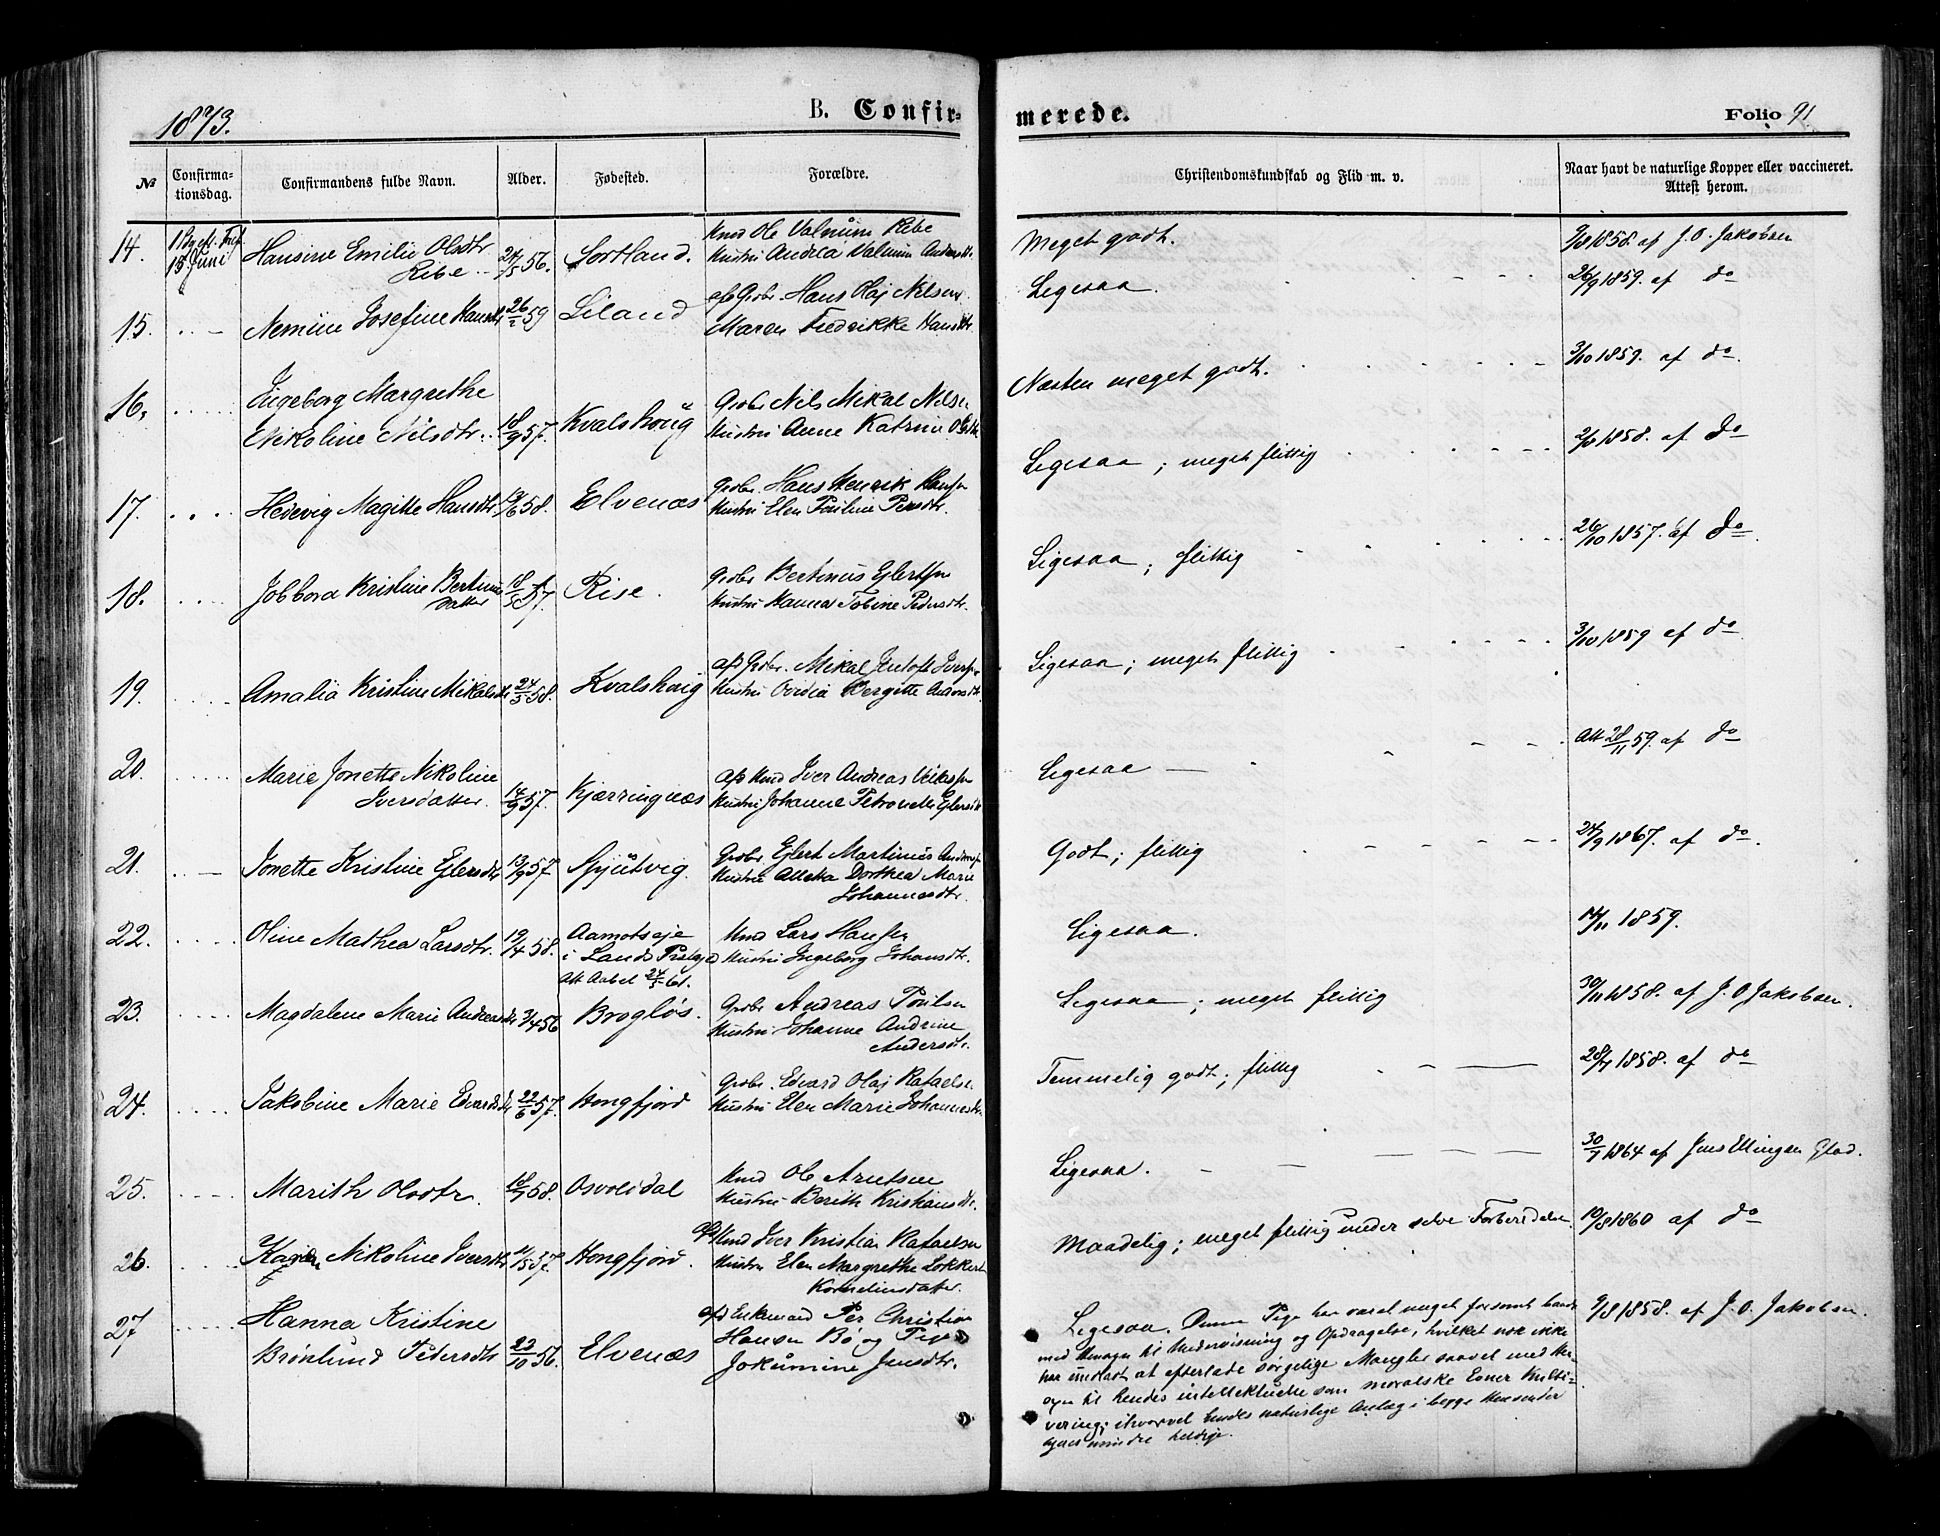 1873.
B. Confir-
merede.
Folio 91.
№
Confirma-
tionsdag.
Confirmandens fulde Navn.
Alder.
Fødested.
Forældre.
Christendomskundskab og Flid m. v.
Naar havt de naturlige Kopper eller vaccineret.
Attest herom.
14.
15 Juni
Hansine Emilie Olsdtr
Ribe
56.
Sortland.
Kmd Ole Valnum Ribe
Hustru Andrea Valnum
Meget godt.
1858 af J. O. Jakobsen
15.
Nemine Josefine Hansdtr
26/2 59
Liland
Hans Olaj Nilsen
Maren Fredrikke Hansdtr.
Ligesaa.
26/9 1859. af do
16.
Ingeborg Margrethe
Nikoline Nilsdtr.
18/9 57.
Kvalshoug
Grdbr Nils Mikal Nilsen
Hustru Anne Katrine
Næsten meget godt.
3/10 1859. af do.
17.
Hedevig Magitte Hansdtr
58.
Elvenæs
Grdbr. Hans Henrik Hansen
Hustru Elen Pauline Persdtr.
Ligesaa; meget flittig
1858. af do
18.
Jobbora Kristine Bertinus
datter
57
Rise.
Grdbr Bertinus Ejlertsen
Hustru Hanna Tobine Pedersdtr.
Ligesaa; flittig
26/10 1857. af do.
19.
Amalia Kristine Mikalsdtr
24/3 58.
Kvalshoug
afd Grdbr. Mikal Jentoft Iversen
Hustru Ovidia Bergitte
Ligesaa; meget flittig
3/10 1859 af do
20.
Marie Jonette Nikoline
Iversdatter.
14/9 57.
Kjærringnæs
afd Kmd Iver Andreas
Hustru Johanne Petronelle
Ligesaa
Att 28/11 59. af do
21.
Jonette Kristine Ejlersdtr
13/9 57
Spjutvig.
Grdbr. Ejlert Martinus
Hustru Dorthea Marie
Johannesdtr.
Godt; flittig
24/9 1867. af do.
22.
Oline Mathea Larsdtr.
19/4 58.
Aamotseje
i Land
24/5 61.
Kmd Lars Hansen
Hustru Ingeborg Johansdtr.
Ligesaa.
14/11 1859.
23.
Magdalene Marie Andreasdtr
3/4 56
Brogløs.
Grdbr Andreas Poulsen
Hustru Johanne Andrine
Andersdtr.
Ligesaa; meget flittig
30/11 1858. af J. O. Jakobsen.
24.
Jakobine Marie Edvardsdtr
22/6 57.
Hongfjord
Grdbr. Edvard Olaj Rafaelsen
Hustru Elen Marie Johannesdtr.
Temmelig godt; flittig
1858. af do
25.
Marith Olsdtr.
58.
Osvoldal
Kmd Ole Arntsen
Hustru Berith Kristiansdtr.
Ligesaa.
30/7 1864 af Jens Ellingsen
26.
Karen Nikoline Iversdtr
57.
Hongfjord.
afd Kmd Iver Kristian Rafaelsen
Hustru Elen Margrethe
Korneliusdatter.
Maadelig; meget flittig under selve Forberedelsen.
19/8 1860 af do
27
Hanna Kristine
Brønlund Pedersdtr
23/10 56.
Elvenæs
afd Enkemand Per Christian
Hansen Bø og Pige
Jokumine Jensdtr.
Ligesaa. Denne Pige har været meget forsømt
med Hensyn til Undervisning og Opdragelse, hvilket nok ikke
har undladt at efterlade sørgelige Mangler saavel med Hen-
syn til hendes intellektuelle som moralske Evner Kulti-
vering; ihvorvel hendes naturlige Anlæg i begge Henseender
synes mindre heldige.
9/8 1858. af J. O. Jakobsen.